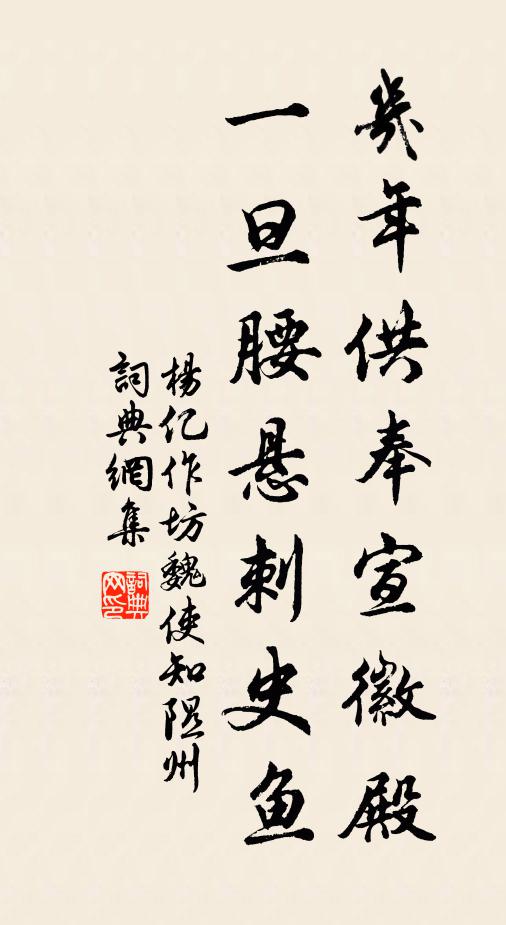 幾年供奉宣徽殿
一旦腰悬刺史鱼
楊亿作坊魏使知隰州
詞典網集
詞典网印